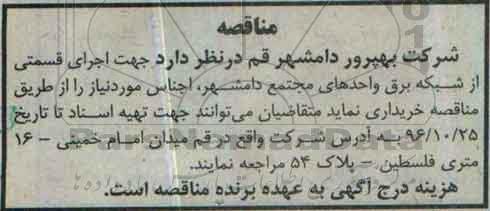 مناقصه
شرکت بهپرور دامشهر قم درنظر دارد جهت اجرای قسمتی
از شبکه برق واحدهای مجتمع دامشهر، اجناس موردنیاز را از طریق
مناقصه خریداری نماید متقاضیان می‌توانند جهت تهیه اسناد تا تاریخ
۹۶/۱۰/۲۵ به آدرس شرکت واقع در قم میدان امام خمینی - ۱۶
متری فلسطین - پلاک ۵۴ مراجعه نمایند.
هزینه درج آگهی به عهده برنده مناقصه است.
ParsNamadData